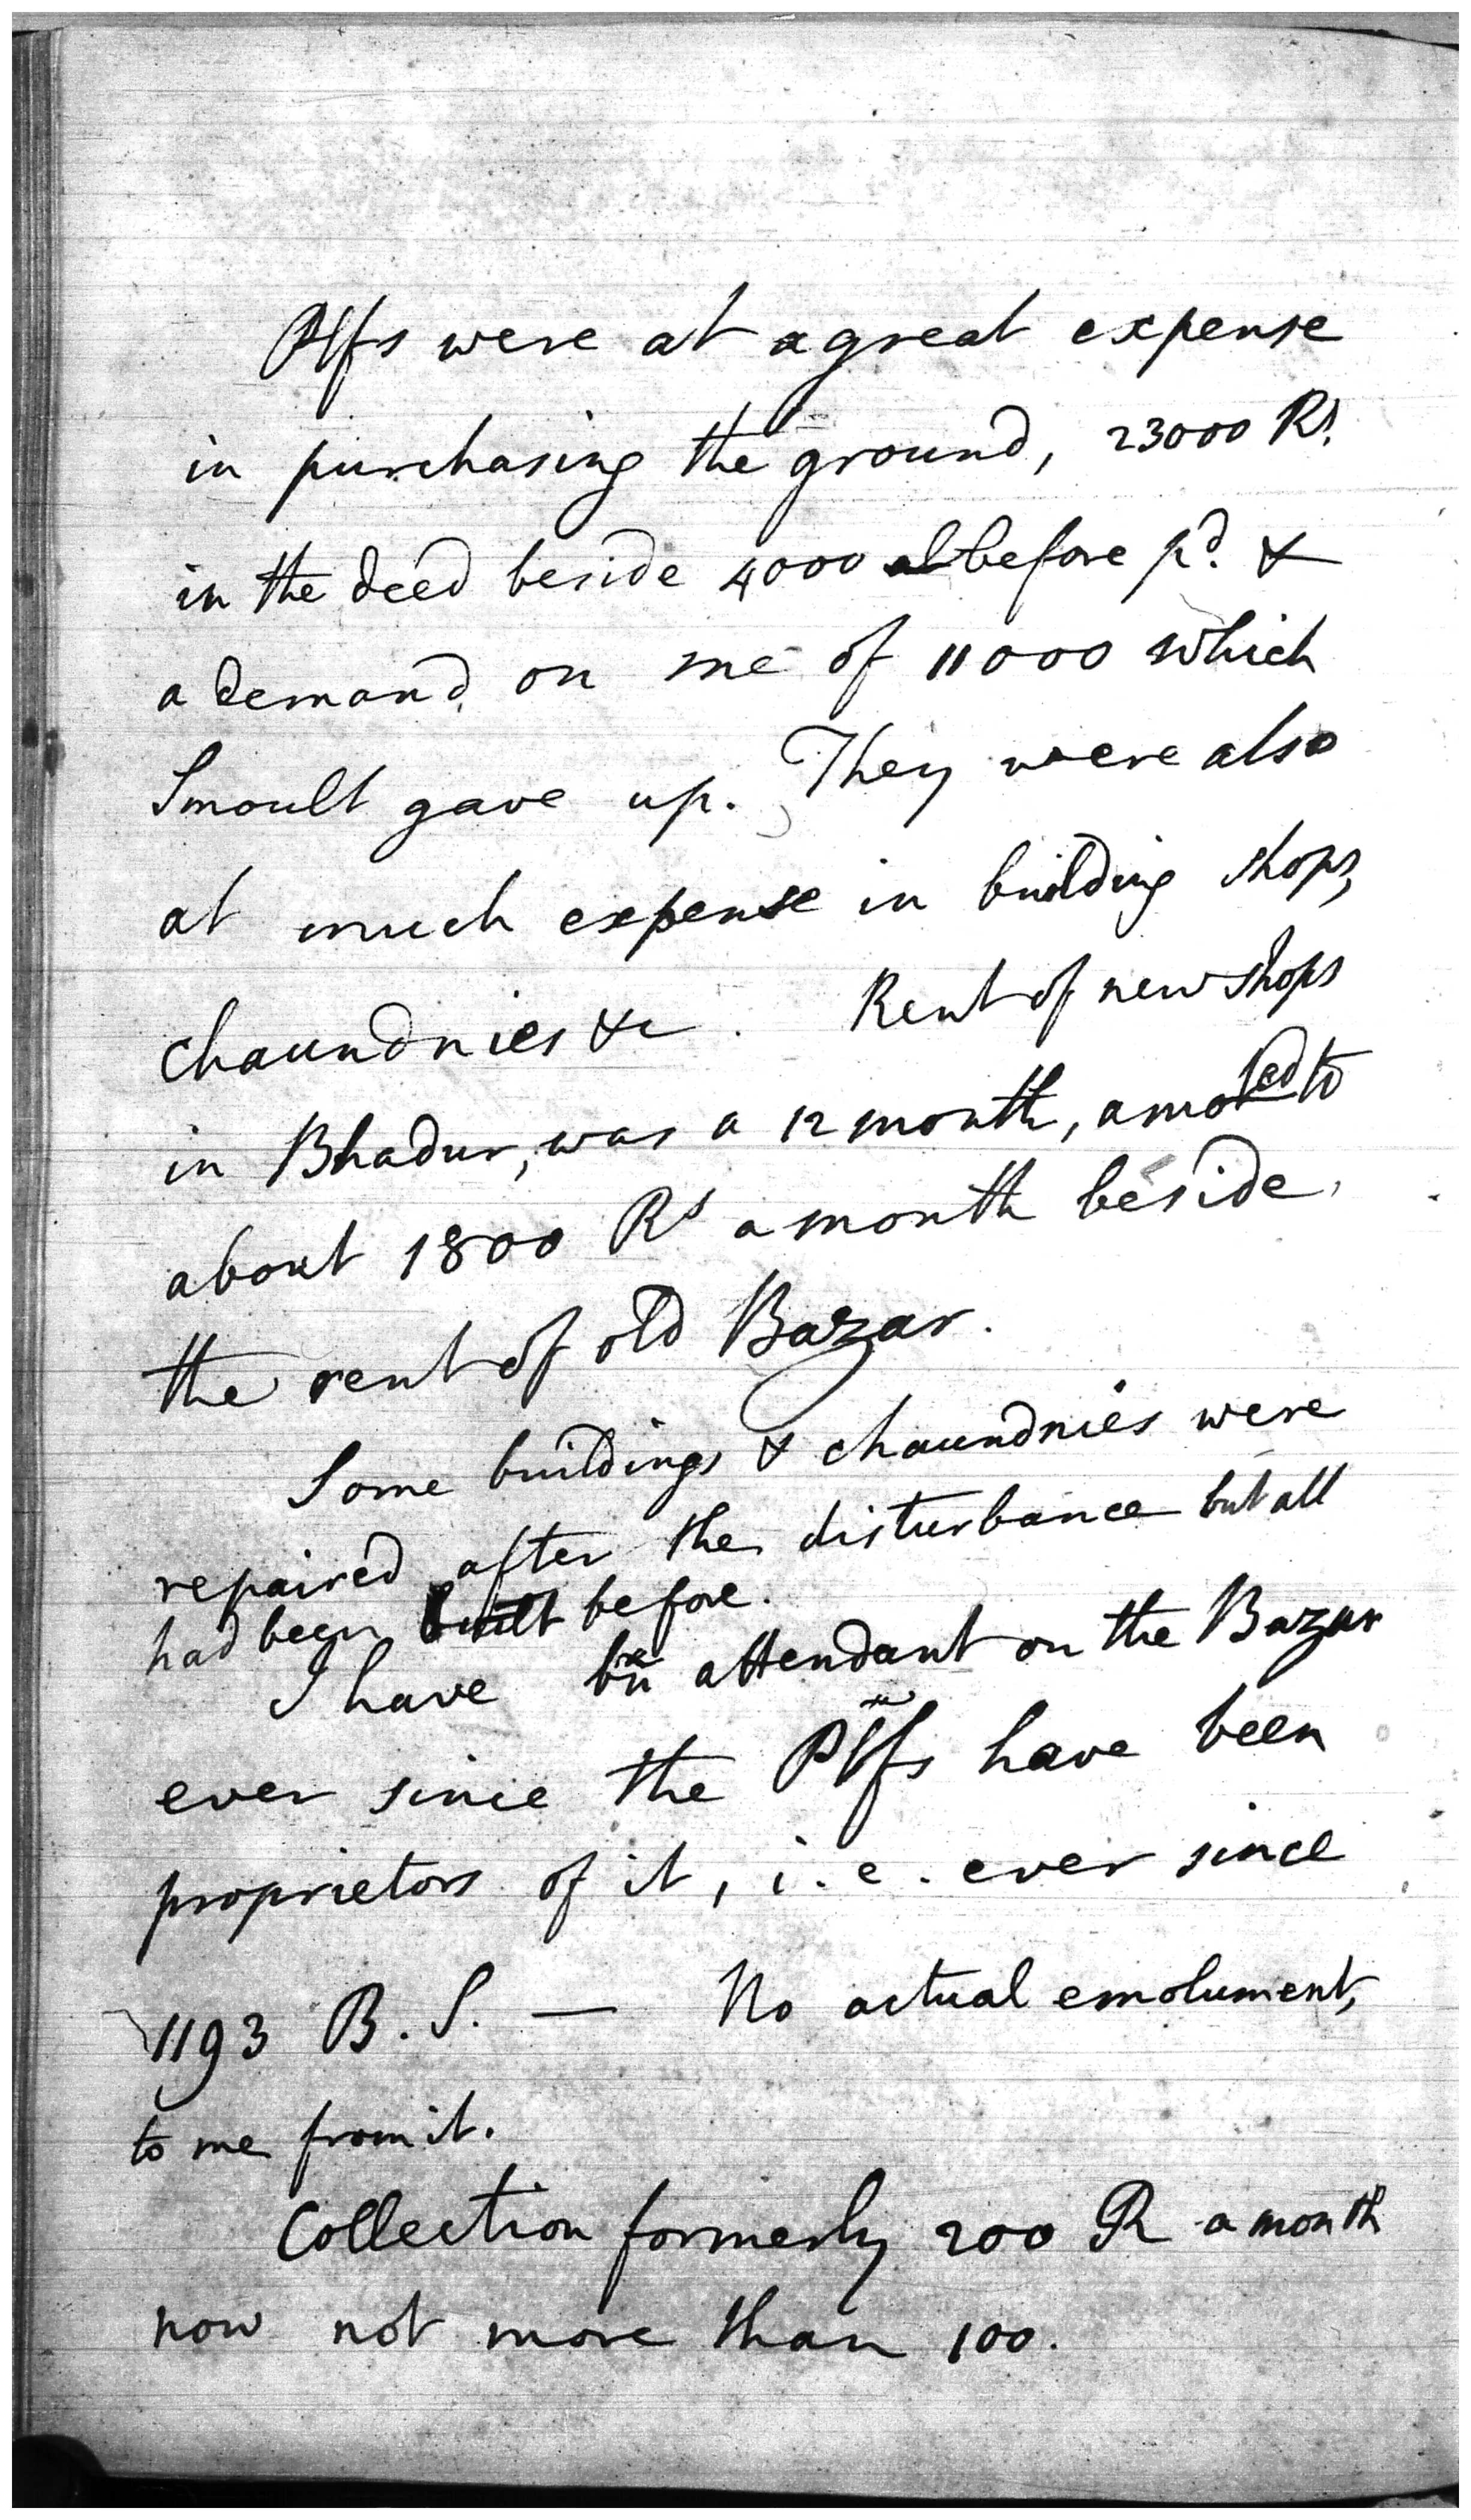 Plfs were at a great expense
in purchasing the ground, 23000 Rs.
in the deed beside 4000 before pd. &
a demand on me of 11000 which
Smoult gave up. They were also
at much expense in building shops,
chaundnies &c. Rent of new shops
in Bhadur, was a 12month, amoted to
about 1800 Rs a month beside
the rent of old Bazar.
Some buildings & chaundnies were
repaired after the disturbance but all
had been built before.
I have bn attendant on the Bazar
ever since the Plfs have been
proprietors of it, i.e. ever since
1193 B.S. — No actual emolument,
to me from it.
Collection formerly 200 R a month
now not more than 100.